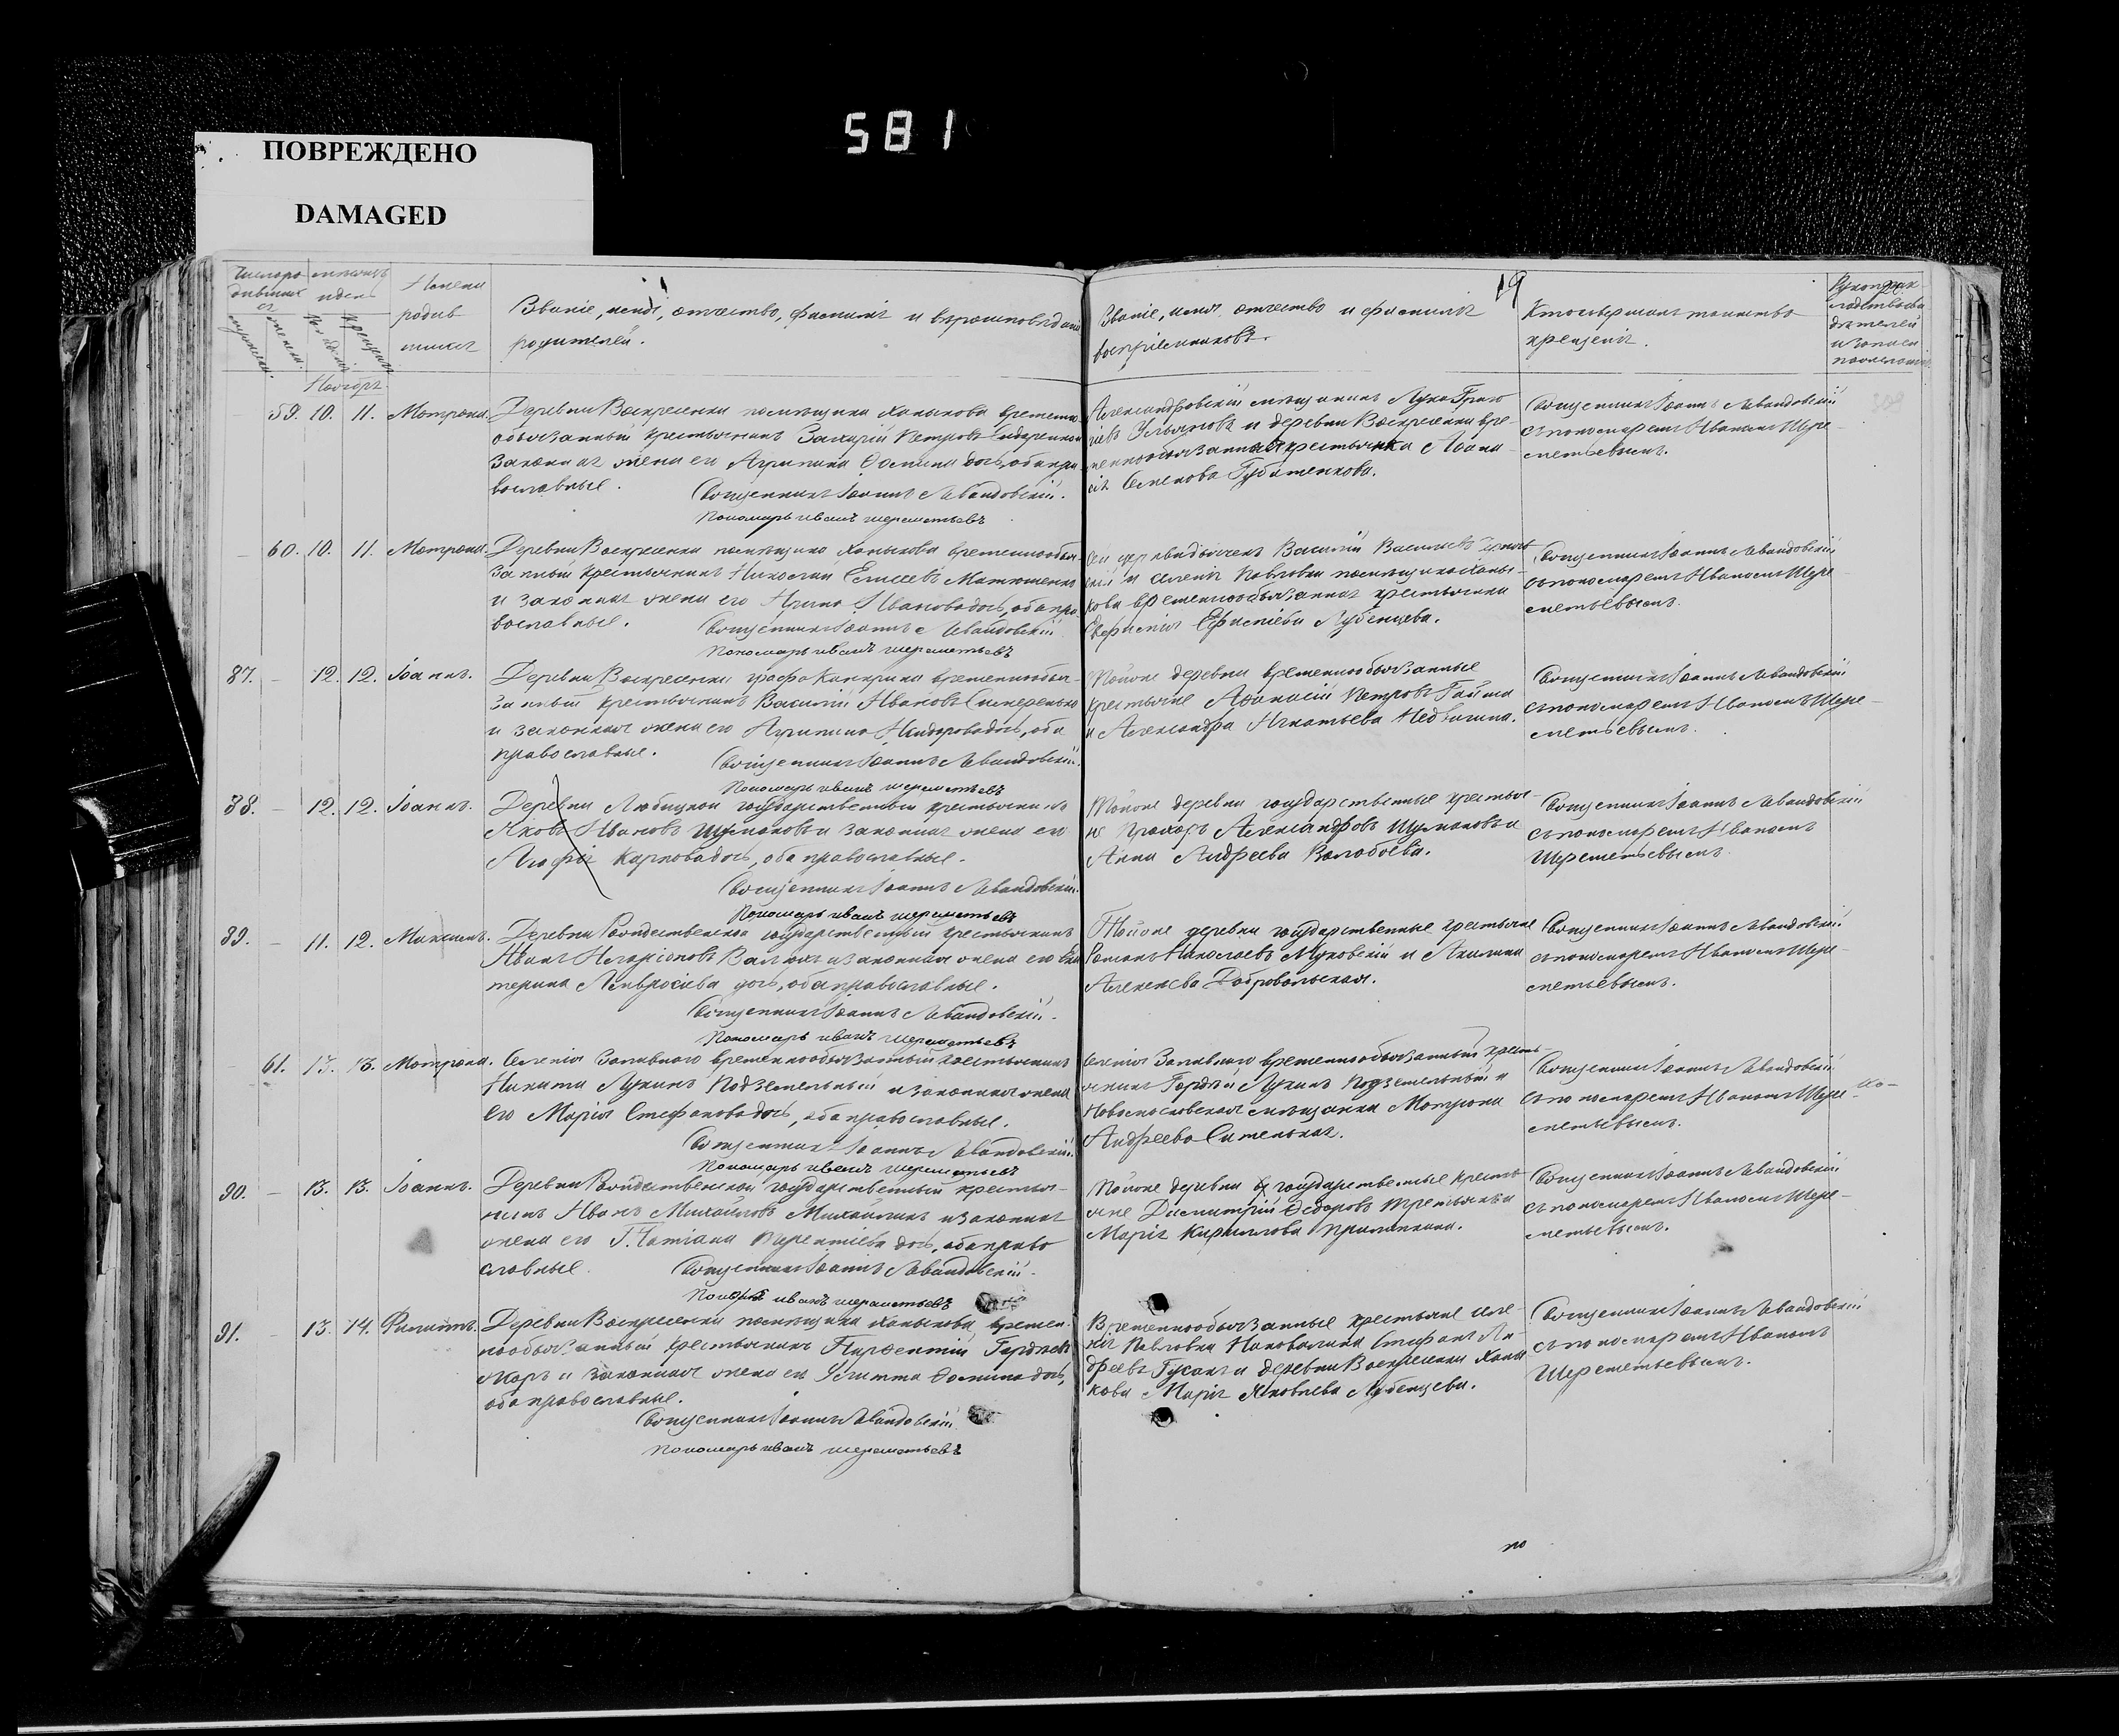 581
ПОВРЕЖДЕНО
DAMAGED
19
Имена
родив
шихся
Званіе, имя, отчество, фамилія и вѣроисповѣданіе
родителей.
Званіе, имя, отчество и фамилія
воспріемниковъ.
Кто совершалъ таинство
крещенія.
59. 10. 11. Матрона.
Деревни Воскресенки помѣщика Ханыкова временно
обязанный крестьянинъ Захарій Петровъ
законная жена его Агрипина Фомина дочь, оба пра
вославные.
Священникъ Іоаннъ Левандовскій.
Пономарь Иванъ Шереметьевъ
Александровскій мѣщанинъ Лука
Ульяновъ и деревни Воскресенки вре
меннообязанная крестьянка
Семенова Губатенкова.
Священникъ Іоаннъ Левандовскій
съ пономаремъ Иваномъ Шере
метьевымъ.
60. 10. 11. Матрона.
Деревни Воскресенки помѣщика Ханыкова временнообя
занный крестьянинъ Николай Елисеевъ Матюшенко
и законная жена его Ирина Иванова дочь, оба пра
вославные.
Священникъ Іоаннъ Левандовскій
Пономарь Иванъ Шереметьевъ
Василій Васильевъ
и селенія Павловки помѣщика Ханы
кова временнообязанная крестьянка
Евфимія Ефиміева Лубенцева.
Священникъ Іоаннъ Левандовскій
съ пономаремъ Иваномъ Шере
метьевымъ.
87. – 12. 12. Іоаннъ.
Деревни Воскресенки графа Канкрина временнообя-
занный крестьянинъ Василій Ивановъ
и законная жена его Агрипина дочь, оба
православные.
Священникъ Іоаннъ Левандовскій.
Пономарь Иванъ Шереметьевъ
Той же деревни временнообязанные
крестьяне Афанасій Петровъ Гайма
и Александра Игнатьева
Священникъ Іоаннъ Левандовскій
съ пономаремъ Иваномъ Шере-
метьевымъ.
88. – 12. 12. Іоаннъ.
Деревни Любицкой государственный крестьянинъ
Яковъ Ивановъ Шумаковъ и законная жена его
Агафія Карпова дочь, оба православные.
Священникъ Іоаннъ Левандовскій.
Пономарь Иванъ Шереметьевъ
Той же деревни государственные крестья-
не Прохоръ Александровъ Шумаковъ и
Анна Андреева Волобоева.
Священникъ Іоаннъ Левандовскій
съ пономаремъ Иваномъ
Шереметьевымъ.
89. – 11. 12. Михаилъ.
Деревни Рождественской государственный крестьянинъ
Иванъ Иларіоновъ и законная жена его Ека
терина Амвросіева дочь, оба православные.
Священникъ Іоаннъ Левандовскій.
Пономарь Иванъ Шереметьевъ
Той же деревни государственные крестьяне
Романъ Николаевъ Муховскій и Акилина
Алексеева Добровольская.
Священникъ Іоаннъ Левандовскій
съ пономаремъ Иваномъ Шере-
метьевымъ.
61. 13. 13. Матрона.
Селенія Заливнаго временнообязанный крестьянинъ
Никита Лукинъ Подземельный и законная жена
его Марія Стефанова дочь, оба православные.
Священникъ Іоаннъ Левандовскій.
Пономарь Иванъ Шереметьевъ
Селенія Заливнаго временнообязанный кресть-
янинъ Гордѣй Лукинъ Подземельный и
Новомосковская мѣщанка Матрона
Андреева
Священникъ Іоаннъ Левандовскій
съ пономаремъ Иваномъ Шере-
метьевымъ.
90. – 13. 13. Іоаннъ.
Деревни Рождественской государственный крестья-
нинъ Иванъ Михайловъ Михайликъ и законная
жена его Татіана Терентіева дочь, оба право
славные.
Священникъ Іоаннъ Левандовскій.
Иванъ Шереметьевъ
Той же деревни государственные кресть
яне Димитрій Федоровъ Третьякъ и
Марія Кириллова
Священникъ Іоаннъ Левандовскій
съ пономаремъ Иваномъ Шере-
метьевымъ.
91. – 13. 14. Филиппъ.
Деревни Воскресенки помѣщика Ханыкова времен-
нообязанный крестьянинъ Терентій Гордѣевъ
и законная жена его Улита Фомина дочь,
оба православные.
Священникъ Іоаннъ Левандовскій
Пономарь Иванъ Шереметьевъ
Временнообязанные крестьяне селе-
нія Павловки Стефанъ Ан-
дреевъ Гусакъ и деревни Воскресенки Ханы
кова Марія Яковлева Лубенцева.
Священникъ Іоаннъ Левандовскій
съ пономаремъ Иваномъ
Шереметьевымъ.
по